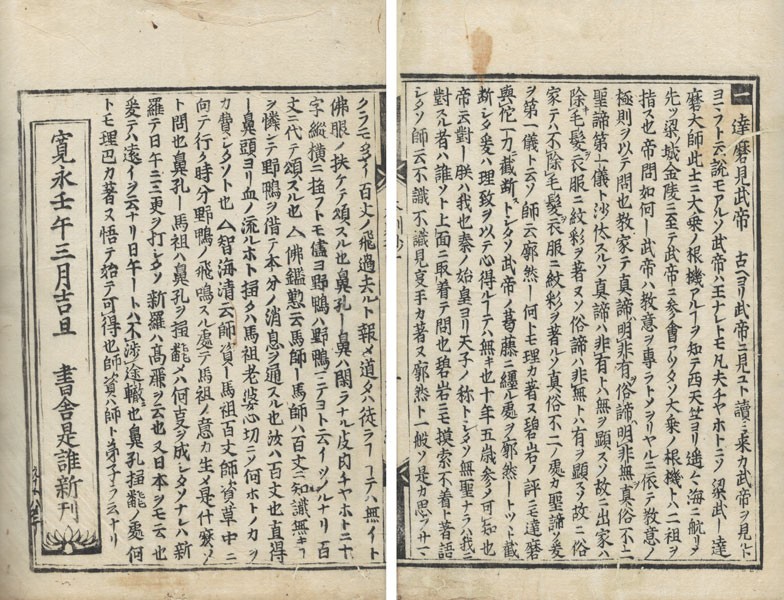 一 達磨見武帝 古ヘヨリ武帝ニ見ユト讀ミ来カ武帝ヲ見ルト
云説モアルソ武帝ハ王ナレトモ凡夫チヤホトニソ 梁武ー達
磨大師此土ニ大乗ノ根機アルーヲ知テ西天竺ヨリ遙々海ニ航リ
先ツ梁城金陵ニ至テ武帝ニ參會アツタソ大乗ノ根機トハ二祖ヲ
指ス也帝問如何ー武帝ハ教意ヲ専ラトメヲリヤルニ依テ教意ノ
極則ヲ以テ問也教家テ真諦明非有俗諦明非無真俗不二
聖諦第一儀ト沙伏スルソ真諦ハ非有トハ無ヲ顕スソ故ニ出家ハ
除毛髪衣服ニ紋彩ヲ著ヌソ俗諦ハ非無トハ有ヲ顕スソ故ニ俗
家テハ不除毛髪衣服ニ紋彩ヲ著ルソ真俗不二ノ處カ聖諦ソ爰
ヲ第一儀ト云ソ師云廓然ー何トモ理カ著ヌ碧岩ノ評ニモ達磨
與佗一刀截断トシタソ武帝ノ葛藤ニ纏ル處ヲ廓然ートツト截
断シタソ爰ハ理致ヲ以テ心得ルーテハ無キ也十年五歳參メ可知也
帝云對ー朕ハ我也秦ノ始皇ヨリ天子ノ称トシタソ無聖ナラハ我ニ
對スル者ハ誰ソト上面ニ取着テ問也碧岩ニモ摸索不着ト著語
シタソ師云不識 不識見手カ著ヌ廓然ト一般ソ是カ思フサマ
百丈ノ飛過去ルト報メ道タハ徒ラーテハ無イト
佛眼ノ扶ケテ頌スル也鼻孔ー鼻ハ閑ラナル皮肉チヤホトニ十
字縦横ニ扭フトモ儘ヨ野鴨ハ野鴨ニテヨト云イツルナリ 百
丈ニ代テ頌スル也 佛鑑懃云馬師ー馬師ハ百丈ニ知識無キヿ
ヲ憐シテ野鴨ヲ借テ本分ノ消息ヲ通スル也汝ハ百丈也直得
ー鼻頭ヨリ血ノ流ルホト扭タハ馬祖老婆心切ニソ何ホトノカヲ
カ費シタソト也 智海清云師資ー馬祖百丈師資草中ニ
向テ行ク時分野鴨ノ飛鳴スル處テ馬祖ノ意カ生メ是什麼ソ
ト問也鼻孔ー馬祖ハ鼻孔ヲ扭メハ何変ヲ成シタソナレハ新
羅テ日午ニ三更ヲ打シタソ 新羅ハ高飛ヲ云也又日本ヲモ云也
爰テハ遠イヲ云ナリ日午ートハ不渉途轍也鼻孔扭處何
トモ理巴カ著ヌ悟テ始テ可得也師資ハ師ト弟子ヲ云ナリ
寛永壬午三月吉旦 書舎是誰新刊